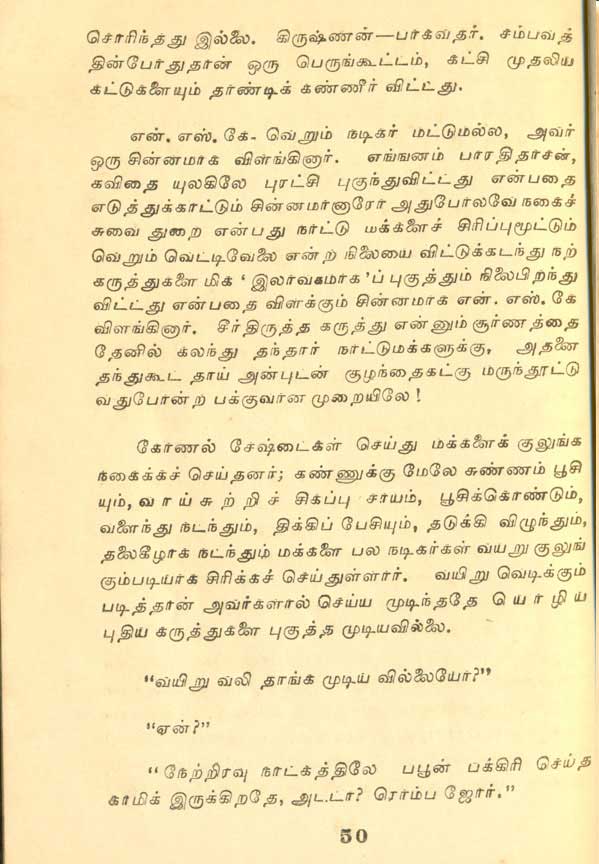 சொரிந்தது இல்லை. கிருஷ்ணன்—பாகவதர். சம்பவத்
தின்போதுதான் ஒரு பெருங்கூட்டம், கட்சி முதலிய
கட்டுகளையும் தாண்டிக் கண்ணீர் விட்டது.
என். எஸ். கே- வெறும் நடிகர் மட்டுமல்ல, அவர்
ஒரு சின்னமாக விளங்கினார். எங்ஙனம் பாரதிதாசன்,
கவிதை யுலகிலே புரட்சி புகுந்துவிட்டது என்பதை
எடுத்துக்காட்டும் சின்னமானாரோ அதுபோலவே நகைச்
சுவை துறை என்பது நாட்டு மக்களைச் சிரிப்புமூட்டும்
வெறும் வெட்டிவேலை என்ற நிலையை விட்டுக்கடந்து நற்
கருத்துகளை மிக ' இலாவகமாக 'ப் புகுத்தும் நிலைபிறந்து
விட்டது என்பதை விளக்கும் சின்னமாக என். எஸ். கே
விளங்கினார். சீர்திருத்த கருத்து என்னும் சூரணத்தை
தேனில் கலந்து தந்தார் நாட்டுமக்களுக்கு, அதனை
தந்துகூட தாய் அன்புடன் குழந்தைகட்கு மருந்தூட்டு
வதுபோன்ற பக்குவான முறையிலே !
கோணல் சேஷ்டைகள் செய்து மக்களைக் குலுங்க
நகைக்கச் செய்தனர்; கண்ணுக்கு மேலே சுண்ணம் பூசி
யும், வாய் சுற்றிச் சிகப்பு சாயம், பூசிக்கொண்டும்,
வளைந்து நடந்தும், திக்கிப் பேசியும், தடுக்கி விழுந்தும்,
தலைகீழாக நடந்தும் மக்களை பல நடிகர்கள் வயறு குலுங்
கும்படியாக சிரிக்கச் செய்துள்ளார். வயிறு வெடிக்கும்
படித்தான் அவர்களால் செய்ய முடிந்ததே யொழிய
புதிய கருத்துகளை புகுத்த முடியவில்லை.
“வயிறு வலி தாங்க முடிய வில்லையோ?”
“ஏன்?”
“ நேற்றிரவு நாடகத்திலே பபூன் பக்கிரி செய்த
காமிக் இருக்கிறதே, அட.டா? ரொம்ப ஜோர்.”
50